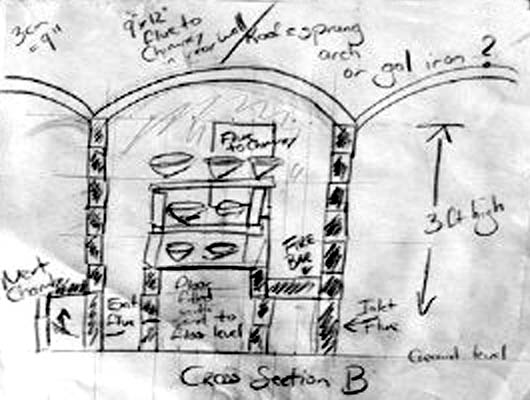 3cm
= 9"
9"x12"
flue to
Chimney
in rear wall
Roof = sprung
arch
or gal iron ?
Flue
to Chimney
3 ft high
FIRE
BAR
Next
Chamber
Exit
flue
Floor
filled
level to
floss level
Inlet
Flue
Ground level
Cross Section B